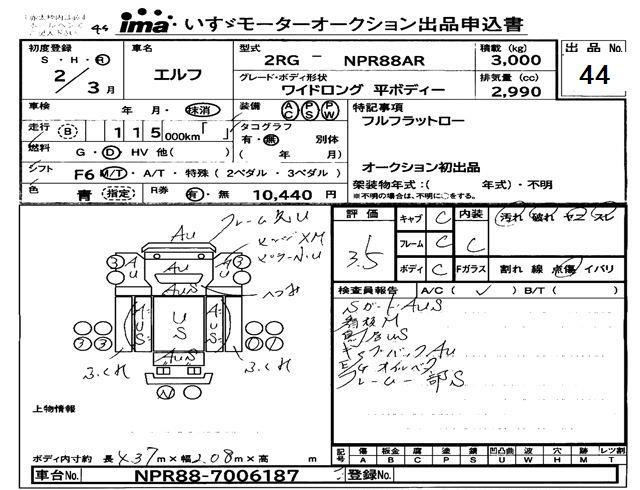 ima・いすゞモーターオークション出品申込書
初度登録 S・H・R 2/3月
車名 エルフ
型式 2RG － NPR88AR
グレード・ボディ形状 ワイドロング 平ボディー
積載 (kg) 3,000
排気量 (cc) 2,990
出品No. 44
車検 年 月・抹消
装備 AC PS PW
走行 B 115 000km「 」
タコグラフ 有・無 別体 ( 年 月)
燃料 G・D・HV 他( )
シフト F6 M/T・A/T・特殊 (2ペダル・3ペダル)
色 青 (指定) R券 有・無 10,440 円
特記事項
フルフラットロー
オークション初出品
架装物年式：( 年式)・不明
※不明の場合は、不明に○をする。
フレーム AU
AU
AUS
US
へこみ
AUS
上物情報
ボディ内寸約 長 4.37 m×幅 2.08 m×高 m
評価 3.5
キャブ C 内装 汚れ 破れ ヤニ スレ
フレーム C C
ボディ C Fガラス 割れ 線 点傷 イバリ
検査員報告 A/C ( ✓ ) B/T ( )
SガードAUS
看板M
ギャブバックAU
E/gオイル
フレーム一部S
記号 傷 板金 腐 塗 錆 凹凸曲 波 穴 跡 レツ割
A B C P S U W H M T
車台No. NPR88-7006187 登録No.